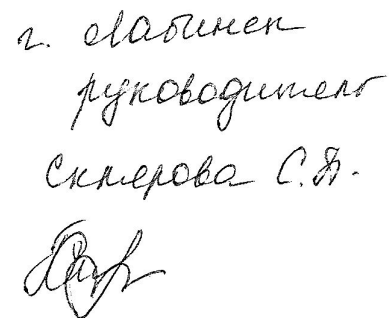 г. Лабинск
руководитель
Склярова С.П.